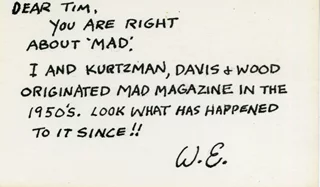 DEAR TIM,
YOU ARE RIGHT
ABOUT 'MAD'.
I AND KURTZMAN, DAVIS & WOOD
ORIGINATED MAD MAGAZINE IN THE
1950'S. LOOK WHAT HAS HAPPENED
TO IT SINCE!!
W.E.